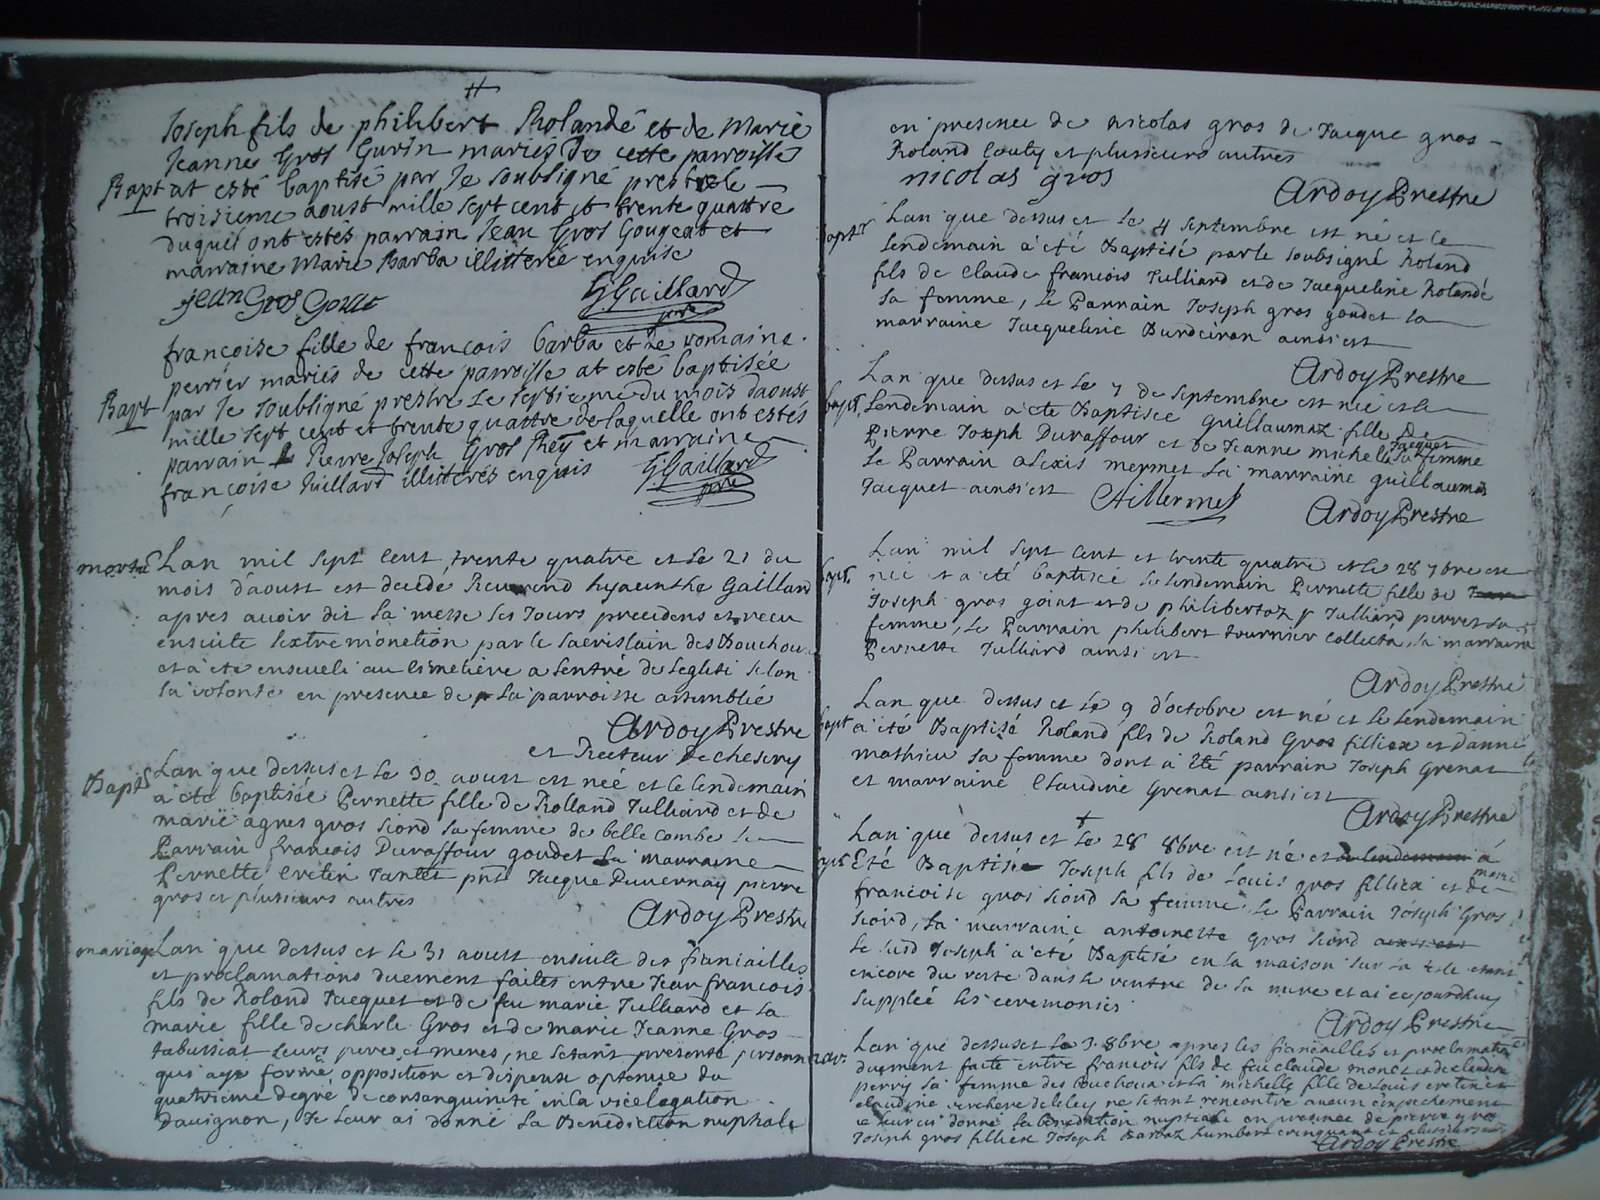 Joseph fils de philibert Rolandé et de Marie
Jeanne Gros Gurin mariez de cette parroisse
Bapt at esté baptisé par Je soubsigné prestre le
troisieme aoust mille sept cent et trente quattre
duquel ont estes parrain Jean Gros Gougeat et
marraine Marie Barba illitterée enquise
jean Gros Goujat
G Gaillard
ptre
francoise fille de francois barba et de romaine
perrier mariés de cette parroisse at esté baptisée
Bapt par Je soubsigné prestre Le septieme du mois daoust
mille sept cent et trente quattre de laquelle ont estés
parrain Pierre Joseph Gros Rey et marraine
françoise Juillard illitterés enquis
G Gaillard
ptre
mortu Lan mil sept cent trente quatre et le 21 du
mois d'aoust est decede Reverend hyacinthe Gaillard
apres avoir dit la messe les Jours precedens et recu
ensuite lextremonction par le sacristain des Bouchou
et a ete enseveli au cimetière a lentré de leglise selon
sa volonté en presence de la parroisse assemblée
Ardoy Prestre
et Recteur de chesery
Bapts Lan que dessus et le 30 aoust est née et le lendemain
a ete baptisée Pernette fille de Rolland Julliard et de
marie agnes gros siord sa femme de belle combe le
Parrain francois Duraffour goudet la marraine
Pernette cretin Jantet pnt Jacque Duvernay pierre
gros et plusieurs autres
Ardoy Prestre
mariage Lan que dessus et le 31 aoust ensuite des fiancailles
et proclamations duement faites entre Jean francois
fils de Roland Jacquet et de feu marie Julliard et la
marie fille de charle Gros et de marie Jeanne Gros
tabussiat leurs peres et meres, ne setant presenté personne
qui aye formé opposition et dispense optenue du
quatrieme degré de consanguinité en la vicelegation
Davignon, Je leur ai donné la Benediction nuptiale
en presence de nicolas gros de Jacque gros
Roland couty et plusieurs autres
nicolas gros
Ardoy Prestre
bapt Lan que dessus et le 4 septembre est né et le
lendemain a été Baptisé par le soubsigné Roland
fils de claude francois Julliard et de Jacqueline Rolandé
sa femme, le Parrain Joseph gros goudet la
marraine Jacqueline Burdeiron ainsi est
Ardoy Prestre
bapt Lan que dessus et le 7 de septembre est née et le
lendemain a ete Baptisée guillaumaz fille de
Pierre Joseph Duraffour et de Jeanne michele Jacquet sa femme
le Parrain alexis mermet la marraine guillauma
Jacquet ainsi est
A Mermet
Ardoy Prestre
bapt. Lan mil sept cent et trente quatre et le 28 7bre est
née et a été baptisée le lendemain Pernette fille de
Joseph gros goiat et de philibertaz Julliard perret sa
femme, le Parrain philibert tournier collecta, la marraine
Pernette Julliard ainsi est
Ardoy Prestre
bapt Lan que dessus et le 9 d'octobre est né et le lendemain
a été Baptizé Roland fils de Roland Gros fillien et danne
mathieu sa femme dont a été parrain Joseph Grenat
et marraine Claudine Grenat ainsi est
Ardoy Prestre
bapt Lan que dessus et le 28 8bre est né et a
Eté Baptisé Joseph fils de Louis gros fillien et de marie
francoise gros siord sa femme, le Parrain Joseph Gros
siord, la marraine antoinette Gros siord
le susd Joseph a été Baptisé en la maison sur la tete etant
encore du reste dans le ventre de sa mere et ai ce jourdhuy
suppleé les ceremonies
Ardoy Prestre
mar. Lan que dessus et le 3 8bre apres les fiancailles et proclamations
duement faite entre francois fils de feu claude monet et de claudine
perrin sa femme des Bouchoux et la michelle fille de Louis cretin et
claudine verchere deleley ne setant rencontré aucun empechement
Je leur ai donné la benediction nuptiale en presence de pierre gros
Joseph gros fillien Joseph Barbaz humbert et plusieurs
Ardoy Prestre